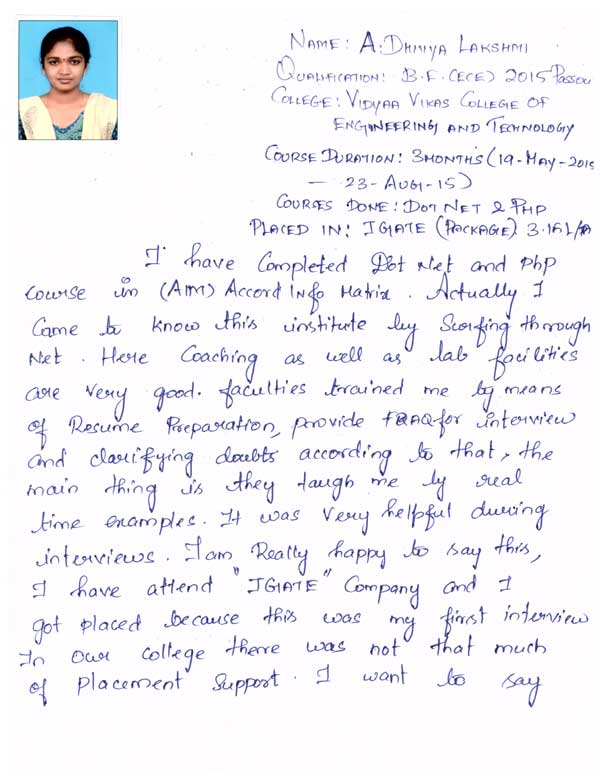 NAME: A. DHIVYA LAKSHMI
QUALIFICATION: B.E. (ECE) 2015 Passou
COLLEGE: VIDYAA VIKAS COLLEGE OF
ENGINEERING AND TECHNOLOGY
COURSE DURATION: 3 MONTHS (19-MAY-2015
— 23-AUG-15)
COURSES DONE: DOT NET & PHP
PLACED IN: IGATE (PACKAGE) 3.16 L/A
I have Completed Dot Net and Php
course in (AIM) Accord Info Matrix. Actually I
Came to know this institute by Surfing through
Net. Here Coaching as well as lab facilities
are very good. faculties trained me by means
of Resume Preparation, provide FAQ for interview
and clarifying doubts according to that, the
main thing is they taugh me by real
time examples. It was very helpful during
interviews. I am Really happy to say this,
I have attend "IGATE" Company and I
got placed because this was my first interview
In our college there was not that much
of Placement Support. I want to say